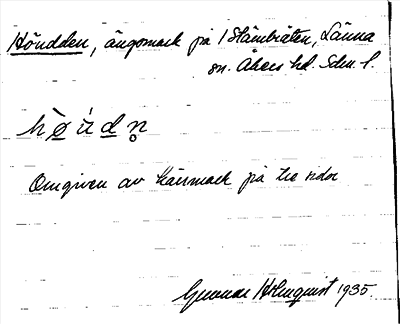 Höudden, ängsmark på 1 Stämbråten, Länna
sn. Åkers hd. Sdm. l.
hø̀údn̥
Omgiven av kärrmark på tre sidor
Gunnar Holmquist 1935.